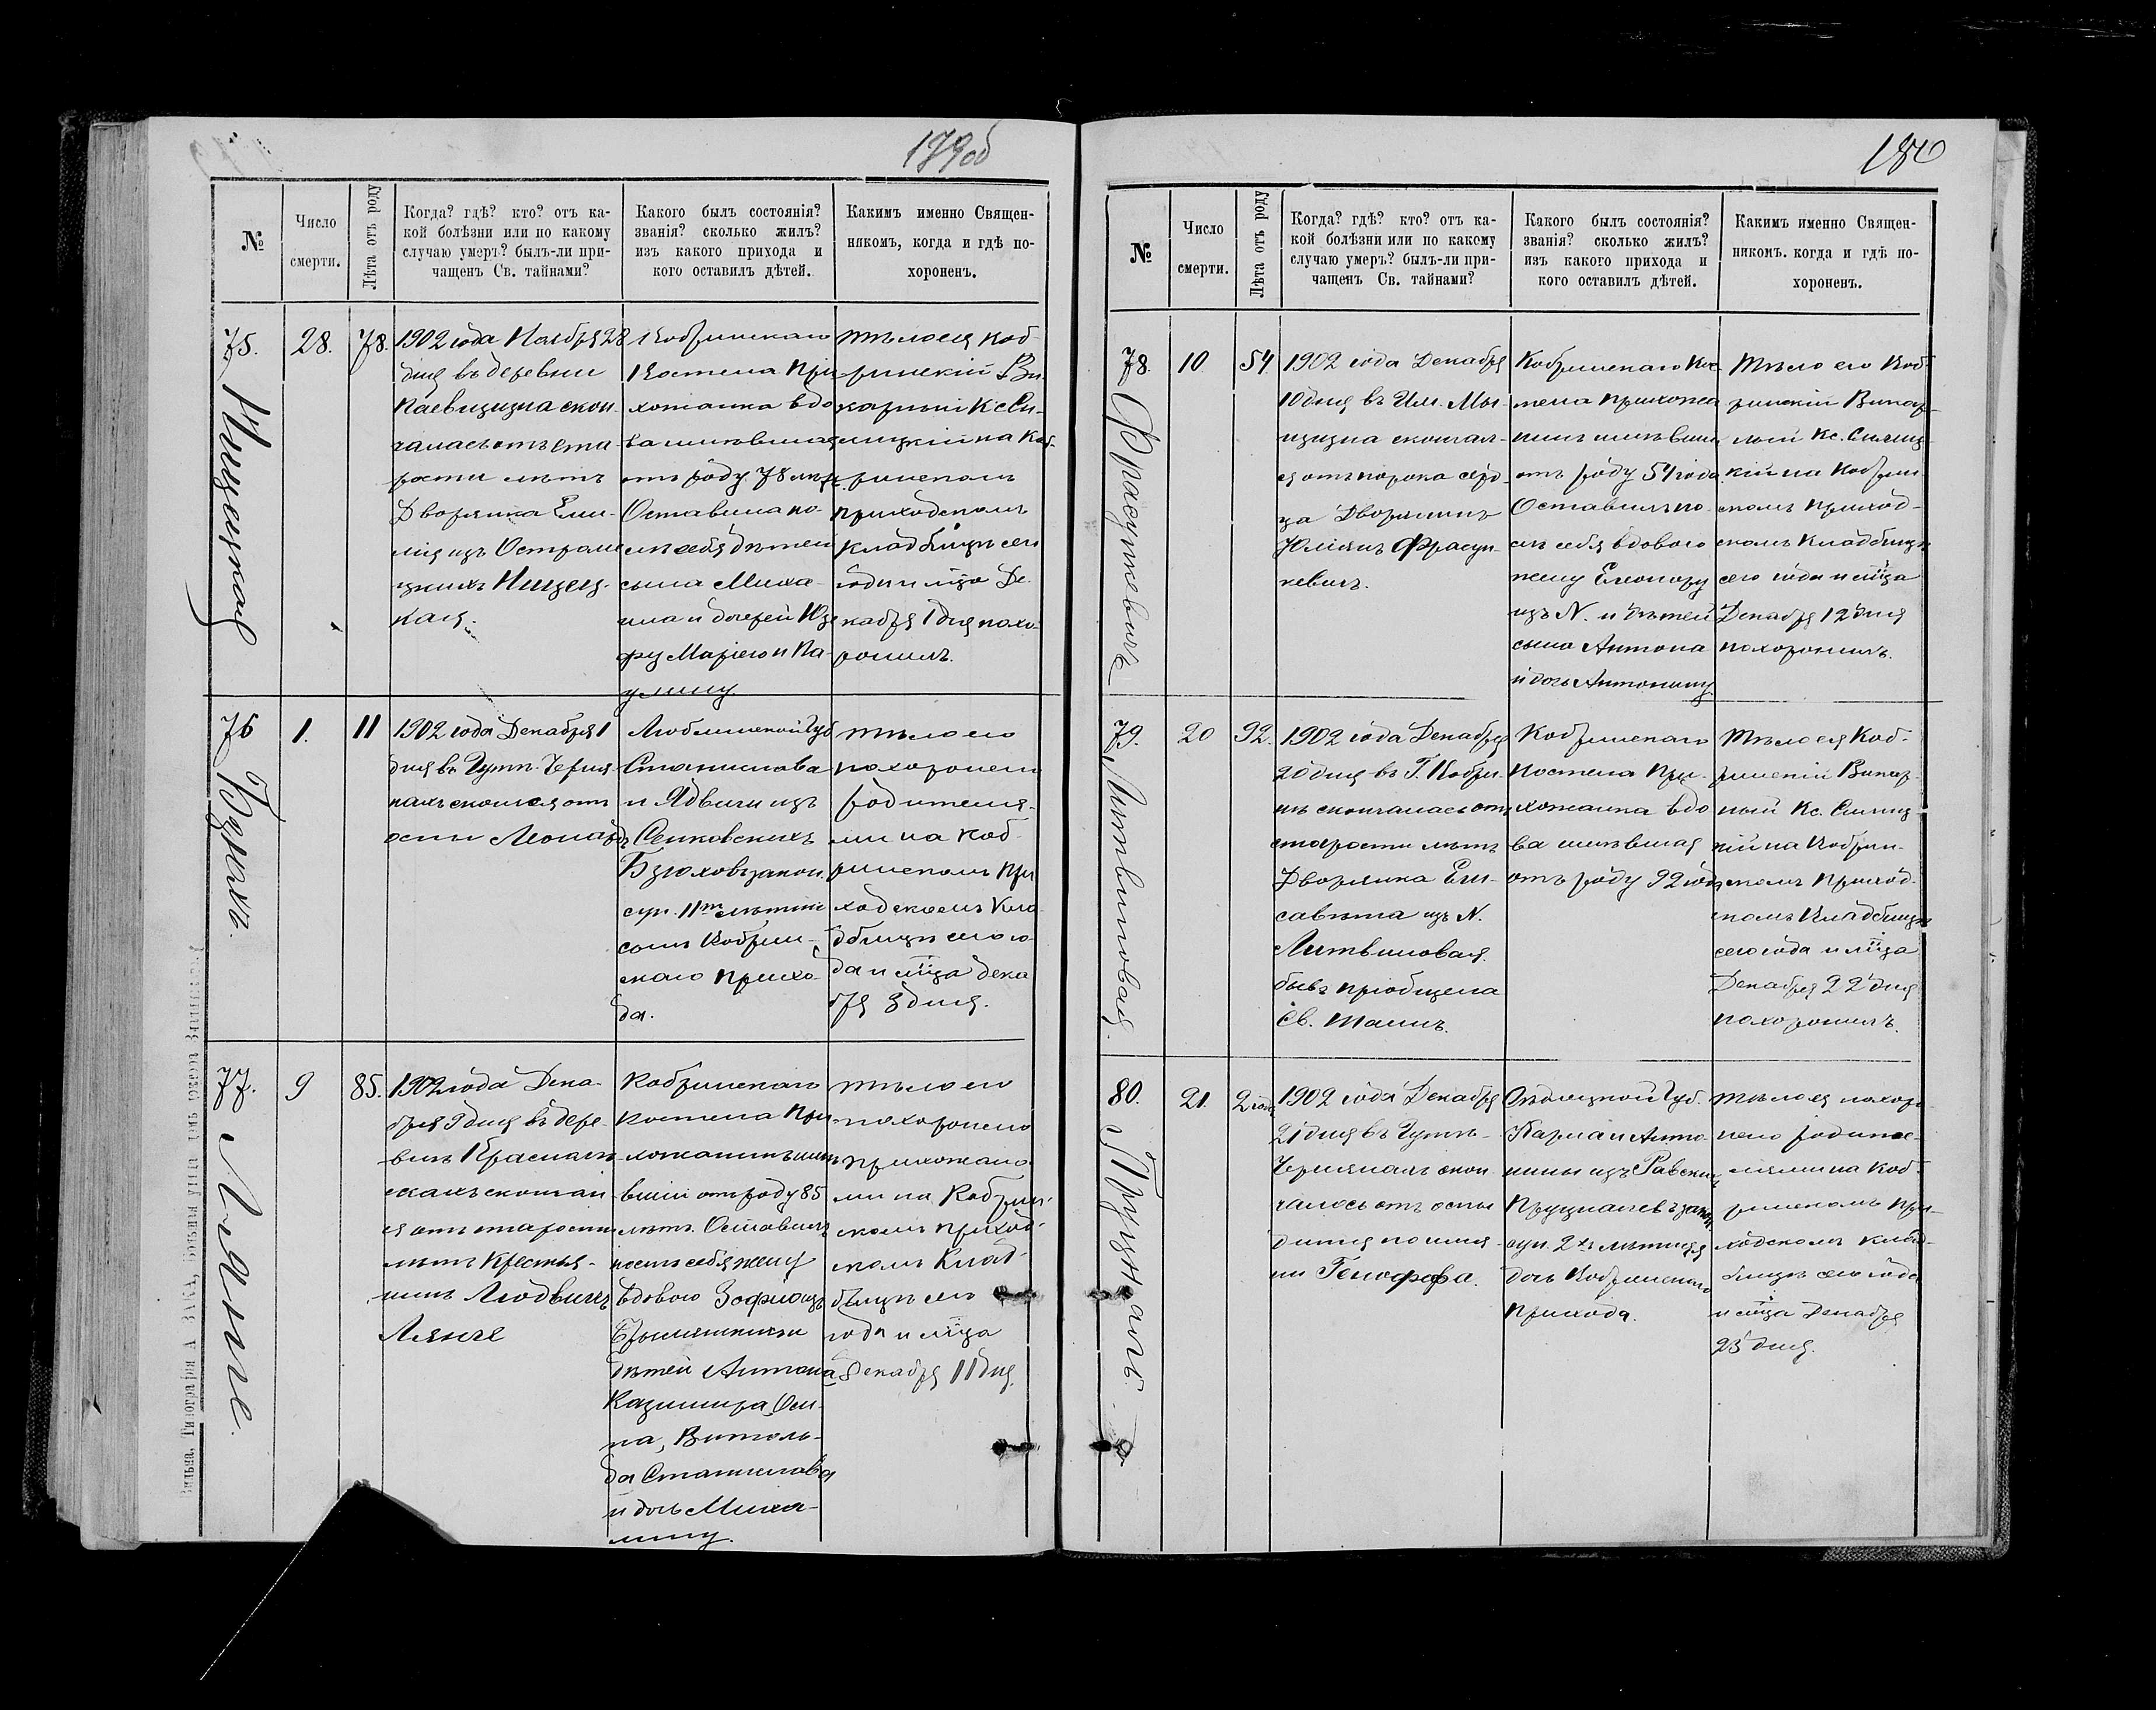 179об
№
Число
смерти.
Лѣта отъ роду
Когда? гдѣ? кто? отъ ка-
кой болѣзни или по какому
случаю умеръ? былъ-ли при-
чащенъ Св. тайнами?
Какого былъ состоянія?
званія? сколько жилъ?
изъ какого прихода и
кого оставилъ дѣтей.
Какимъ именно Священ-
никомъ, когда и гдѣ по-
хороненъ.
75.
Нищецкая
28.
78.
1902 года Ноября 28
дня въ деревни
Паевщизна скон-
чалась отъ ста-
рости лѣтъ
Дворянка Еми-
лія изъ Остроме
цкихъ Нищец-
кая.
Кобринскаго
Костела При
хожанка вдо
ва жившая
отъ роду 78 лѣтъ.
Оставила по-
слѣ себя дѣтей
сына Миха-
ила и дочерей Юзе
фу Марію и Па-
улину
тѣло ея Коб-
ринскій Ви-
карный Кс. Си-
лицкій на Коб-
ринскомъ
приходскомъ
кладбищѣ сего
года и мѣца Де-
кабря 1 дня похо-
ронилъ.
76
Бзюхъ.
1.
11
1902 года Декабря 1
дня въ Гутт. Черня-
нахъ скончался отъ
оспы Леонардъ
Люблинской Губ
Станислава
и Ядвиги изъ
Сенковскихъ
Бзюховъ закон.
суп. 11ти лѣтній
сынъ Кобрин-
скаго прихо-
да.
тѣло его
похоронено
родителя-
ми на Коб-
ринскомъ При
ходскомъ Кла
дбищѣ сего го-
да и мѣца дека
бря 3 дня.
77.
Лянге.
9
85.
1902 года Дека-
бря 9 дня въ дере-
внѣ Красиам-
скахъ скончал
ся отъ старости
лѣтъ Крестья-
нинъ Людвикъ
Лянге
Кобринскаго
костела При
хожанинъ жив
вшій отъ роду 85
лѣтъ. Оставилъ
послѣ себя жену
вдовою Зофію изъ
дѣтей Антона
Казимира, Оси-
па, Витоль-
да Станислава
и дочь Миха-
лину.
тѣло его
похоронено
прихожана-
ми на Кобрин-
скомъ приход-
скомъ Клад-
бищѣ сего
года и мѣца
Декабря 11 дня.
Вильна, Типографія А
180
№
Число
смерти.
Лѣта отъ роду
Когда? гдѣ? кто? отъ ка-
кой болѣзни или по какому
случаю умеръ? былъ-ли при-
чащенъ Св. тайнами?
Какого былъ состоянія?
званія? сколько жилъ?
изъ какого прихода и
кого оставилъ дѣтей.
Какимъ именно Священ-
никомъ. когда и гдѣ по-
хороненъ.
78.
Фрацкевичъ
10
54
1902 года Декабря
10 дня въ Им. Мы-
щизна скончал-
ся отъ порока серд-
ца Дворянинъ
Юліянъ Фрацу-
кевичъ.
Кобринскаго Кос-
тела прихожа
нинъ жившій
отъ роду 54 года.
Оставилъ по-
слѣ себя вдовою
жену Елеонору
изъ N. и дѣтей
сына Антона
и дочь Антонину.
Тѣло его Коб-
ринскій Викар-
ный Кс. Силиц-
кій на Кобрин-
скомъ приход-
скомъ Кладбищѣ
сего года и мѣца
Декабря 12 дня
похоронилъ.
79.
Литвиновая.
20
92.
1902 года Декабря
20 дня въ Г. Кобри-
нѣ скончалась отъ
старости лѣтъ
Дворянка Ели-
савѣта изъ N.
Литвиновая.
бывъ пріобщена
Св. Таинъ.
Кобринскаго
Костела При-
хожанка вдо
ва жившая
отъ роду 92 года
Тѣло ея Коб-
ринскій Викар-
ный Кс. Силиц-
кій на Кобрин-
скомъ приход-
скомъ Кладбищѣ
сего года и мѣца
Декабря 22 дня
похоронилъ.
80.
Пруцналь.
21.
2 года
1902 года Декабря
21 дня въ Гуттѣ-
Чернянахъ скон
чалось отъ оспы
дитя по име-
ни Генофефа.
Сѣдлецкой Губ.
Карла и Анто-
нины изъ Равскихъ
Пруцналевъ закон
суп. 2хъ лѣтняя
дочь Кобринскаго
прихода.
тѣло ея похоро-
нено родите-
лями на Коб-
ринскомъ При-
ходскомъ Клад-
бищѣ сего года
и мѣца Декабря
23 дня.